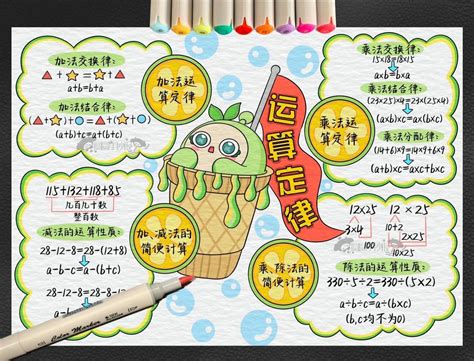 加法交换律:
▲+★=★+▲
a+b=b+a
加法结合律:
(▲+★)+●=▲+(★+●)
(a+b)+c=a+(b+c)
加法运
算定律
运算定律
乘法运
算定律
乘法交换律:
15×18=18×15
a×b=b×a
乘法结合律:
(23×25)×4=23×(25×4)
(a×b)×c=a×(b×c)
乘法分配律:
(14+6)×9=14×9+6×9
(a+b)×c=a×c+b×c
115+132+118+85
几百几十数
整百数
减法的运算性质:
28-12-8=28-(12+8)
a-b-c=a-(b+c)
28-12-8=28-8-12
加、减法的
简便计算
乘、除法的
简便计算
12×25
3×4
12×25
10+2
100
除法的运算性质:
330÷5÷2=330÷(5×2)
a÷b÷c=a÷(b×c)
(b,c均不为0)
Color Marker